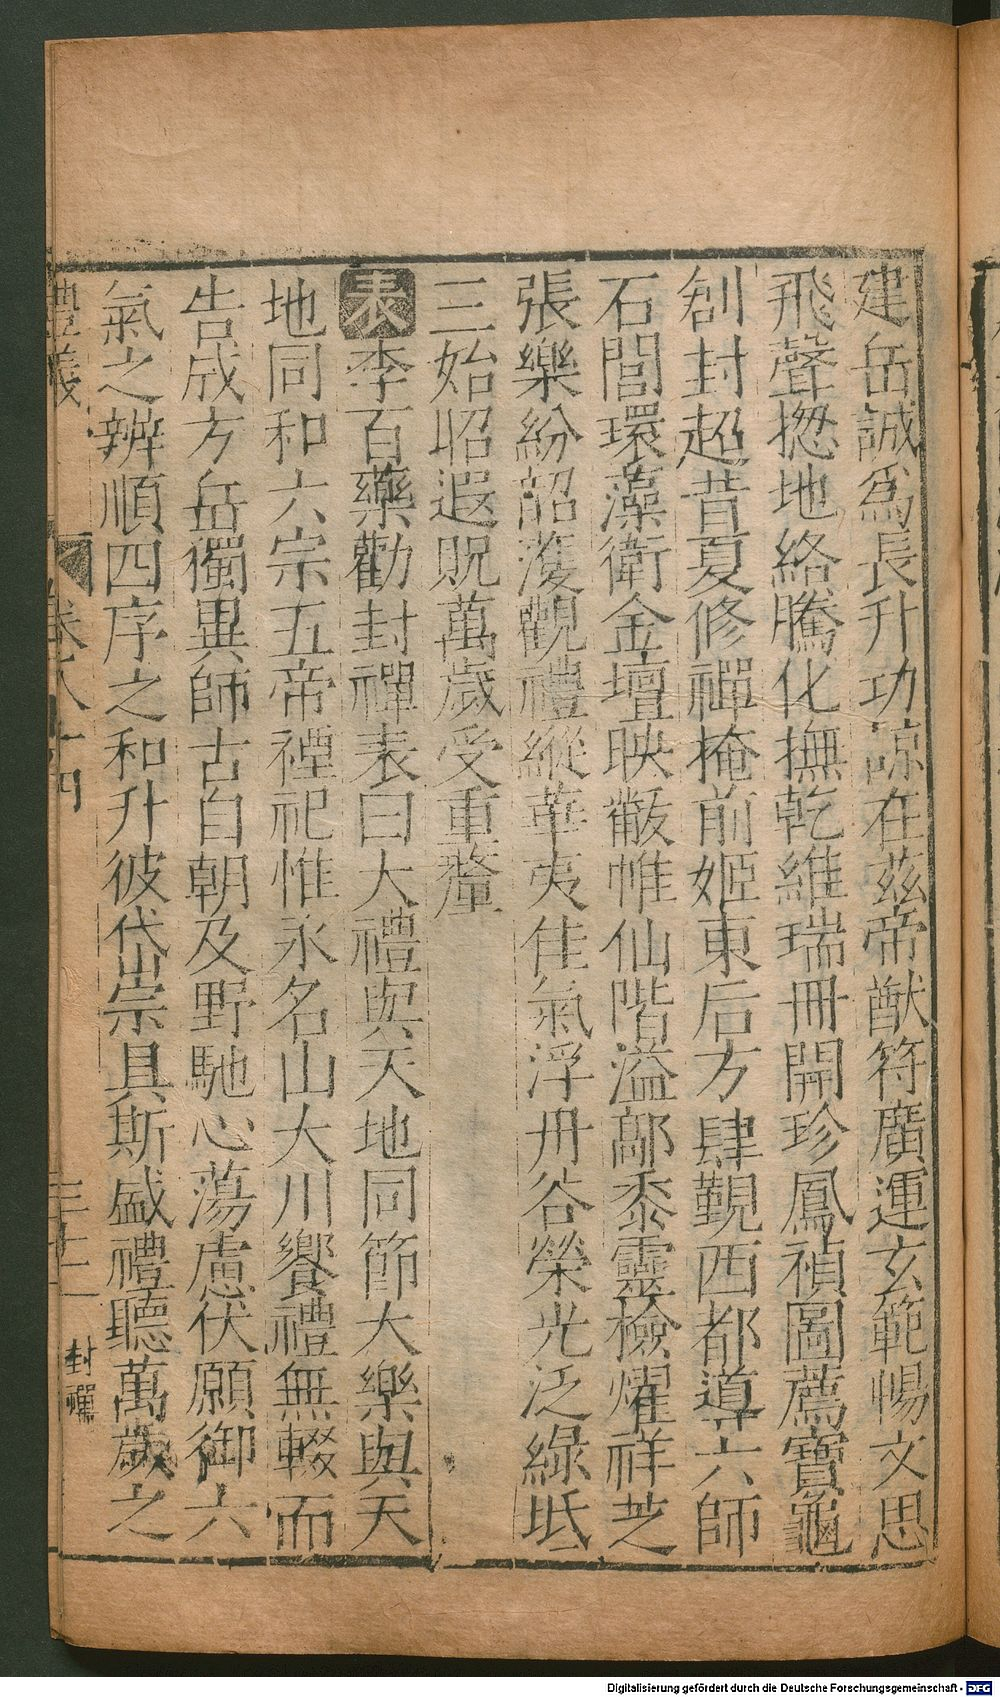 建岳誠爲長升功諒在茲帝猷符廣運玄範暢文思
飛聲揔地絡騰化撫乾維瑞冊開珍鳳禎圖薦寶龜
創封超昔夏修禪掩前姬東后方肆覲西都導六師
石閭環藻衛金壇映黻帷仙階溢鄗黍靈檢燿祥芝
張樂紛韶濩觀禮縱華夷佳氣浮丹谷榮光泛綠坻
三始昭遐貺萬歲受重釐
表李百藥勸封禪表曰大禮與天地同節大樂與天
地同和六宗五帝禋祀惟永名山大川饗禮無輟而
告成方岳獨異師古自朝及野馳心蕩慮伏願御六
氣之辨順四序之和升彼岱宗具斯盛禮聽萬歲之
禮義
卷八十四
三十二
封禪
Digitalisierung gefördert durch die Deutsche Forschungsgemeinschaft - DFG